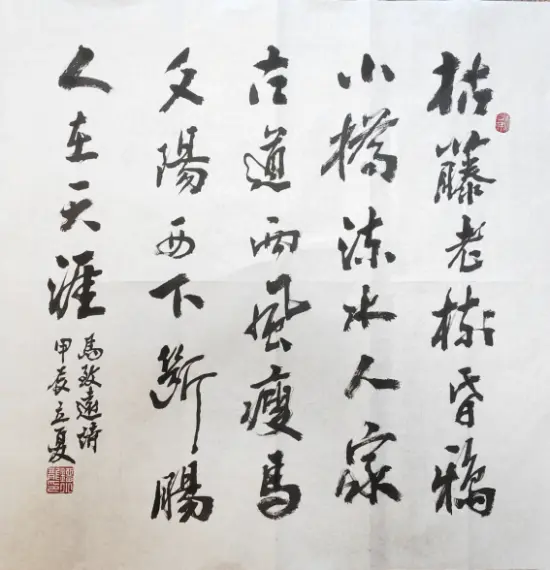 枯籐老树昏鴉
小橋流水人家
古道西風瘦馬
夕陽西下断腸
人在天涯
馬致遠詩
甲辰立夏